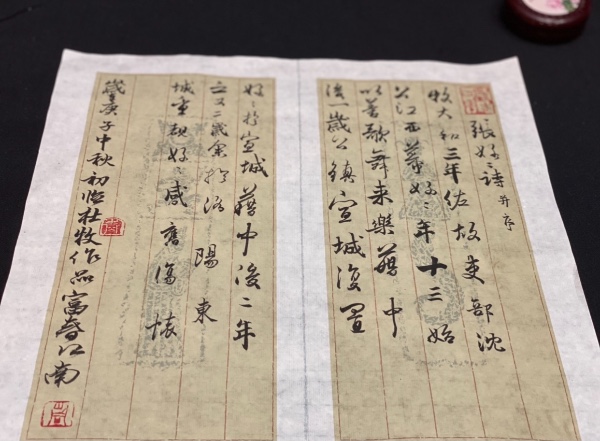 張好〻詩并序
牧大和三年佐故吏部沈
公江西幕好〻年十三始
以善歌舞来樂籍中
後一歲公鎮宣城復置
好〻於宣城籍中後二年
又二歲余於洛陽東
城重覩好〻感舊傷懷
歲庚子中秋初臨杜牧作品富春江南